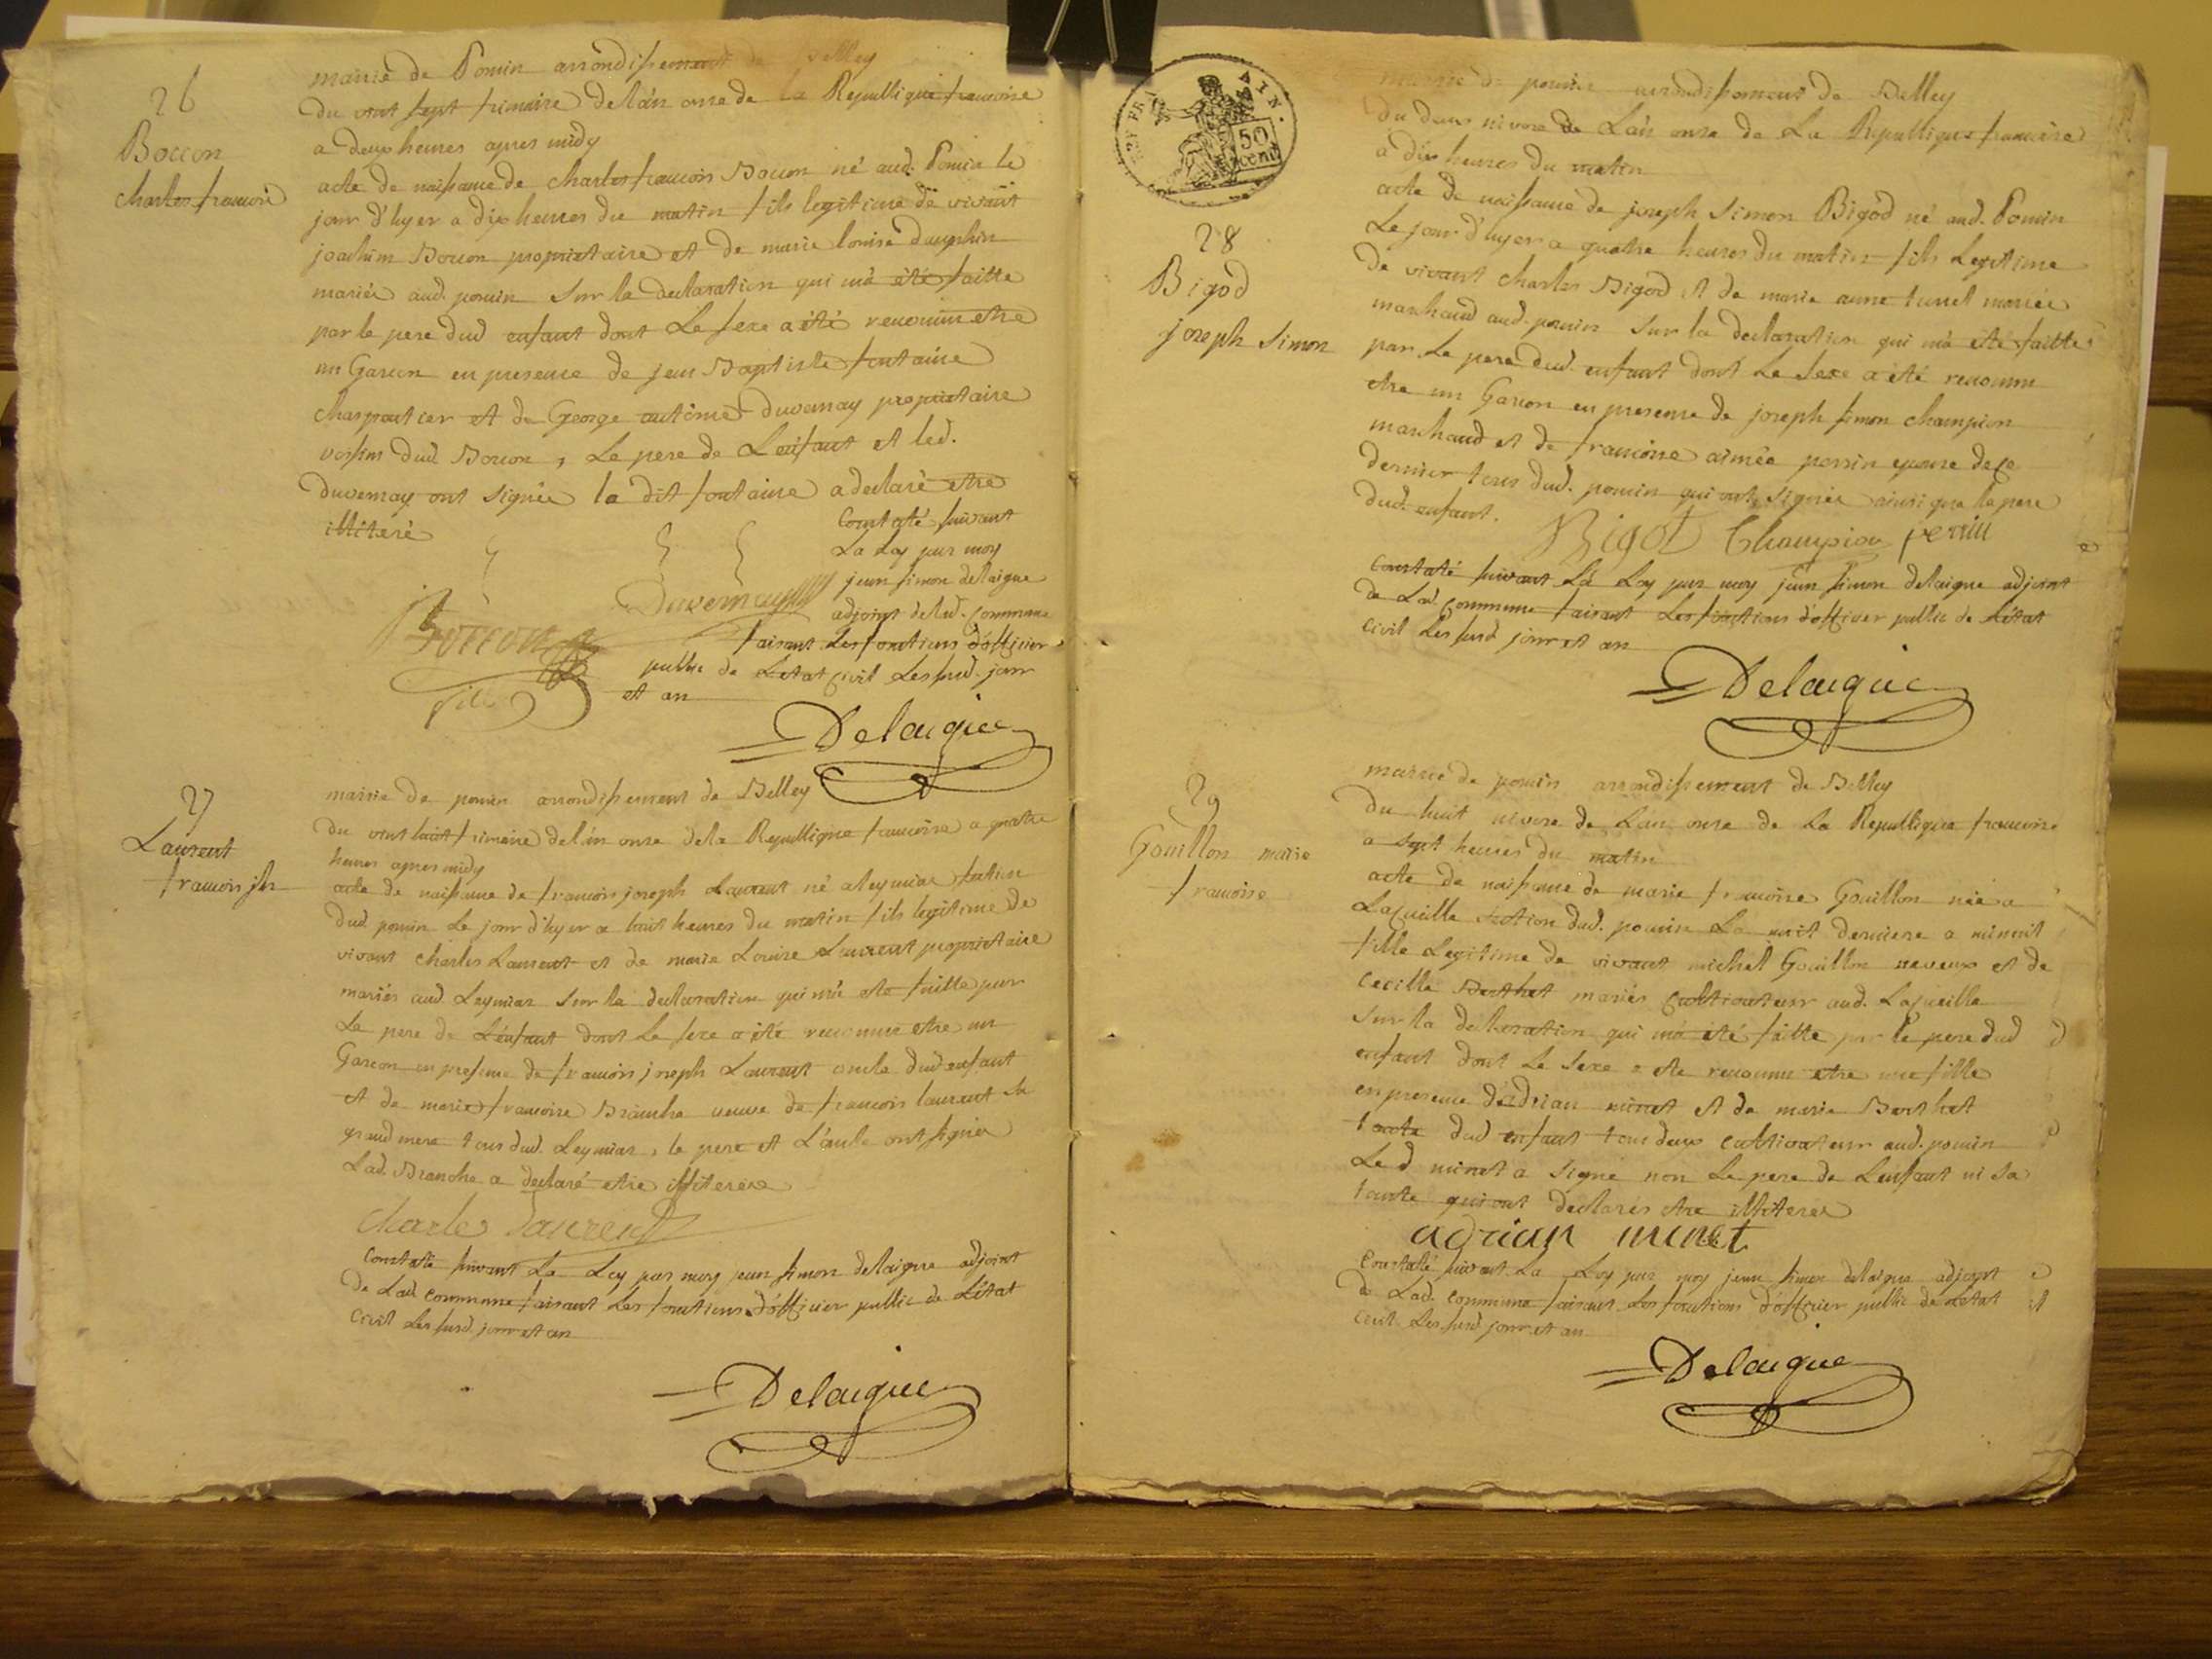 26
Boccon
charles francois
mairie de Poncin arrondissement de Belley
du vint sept frimaire de lan onze de la Republique francoise
a deux heures apres midy
acte de naissance de charles francois Boccon né aud. Poncin le
jour d'hyer a dix heures du matin fils legitime de vivant
joachim Boccon proprietaire et de marie louise dauphin
mariés aud. poncin sur la declaration qui ma été faitte
par le pere dud enfant dont Le sexe a été reconnu etre
un Garcon en presence de jean Baptiste fontaine
charpentier et de George antoine Duvernay proprietaire
voisin dud Boccon, Le pere de Lenfant et led.
Duvernay ont signée le dit fontaine a declaré etre
illiteré
Constaté suivant
La Loy par moy
jean simon delaigue
adjoint de lad. commune
faisant Les fonctions d'officier
public de Létat civil Les susd. jour
et an
Boccon
Duvernay
Delaigue
27
Laurent
francois jh
mairie de poncin arrondissement de Belley
du vint huit frimaire de lan onze de la Republique francoise a quatre
heures apres midy
acte de naissance de francois joseph Laurent né a leymiac section
dud. poncin Le jour d'hyer a huit heures du matin fils legitime de
vivant charles Laurent et de marie Louise Laurent proprietaire
mariés aud. Leymiac sur la declaration qui ma eté faitte par
Le pere de Lenfant dont Le sexe a été reconnu etre un
Garcon en presence de francois joseph Laurent oncle dud enfant
et de marie francoise Branche veuve de francois laurent sa
grand mere tous dud. Leymiac, le pere et L'oncle ont signée
Lad. Branche a declaré etre illiterée
Charles Laurent
Constaté suivant La Loy par moy jean simon delaigue adjoint
de Lad commune faisant Les fonctions d'officier public de Létat
Civil Les susd. jour et an
Delaigue
AIN.
50
cent
28
Bigod
joseph simon
mairie de poncin arrondissement de Belley
du deux nivose de Lan onze de La Republique francoise
a dix heures du matin
acte de naissance de joseph simon Bigod né aud. Poncin
Le jour d'hyer a quatre heures du matin fils Legitime
de vivant charles Bigod et de marie anne mariés
marchand aud. poncin sur la declaration qui ma eté faitte
par Le pere dud. enfant dont Le sexe a été reconnu
etre un Garcon en presence de joseph simon champion
marchand et de francoise aimée perrin epouse de ce
dernier tous dud. poncin qui ont signée ainsi que le pere
dud. enfant.
Bigot Champion perrin
Constaté suivant La Loy par moy jean simon delaigue adjoint
de Lad. commune faisant Les fonctions d'officier public de Létat
civil Les susd jour et an
Delaigue
29
Gouillon marie
francoise
mairie de poncin arrondissement de Belley
du huit nivose de Lan onze de La Republique francoise
a sept heures du matin
acte de naissance de marie francoise Gouillon née a
Lacueille section dud. poncin La nuit derniere a minuit
fille Legitime de vivant michel Gouillon neveux et de
Cecille Berthet mariés cultivateur aud. Lacueille
Sur la declaration qui ma été faitte par le pere dud
enfant dont Le sexe a eté reconnu etre une fille
en presence d'adrian minet et de marie Berthet
tante dud enfant tous deux cultivateur aud. poncin
Led minet a signé non Le pere de Lenfant ni sa
tante qui ont declarés etre illiterés
adrian minet
Constaté suivant La Loy par moy jean simon delaigue adjoint
de Lad. commune faisant Les fonctions d'officier public de Létat
civil Les susd jour et an
Delaigue